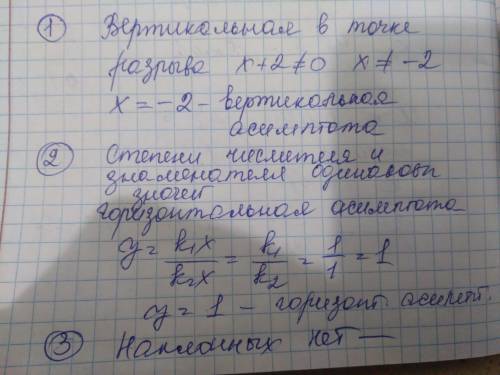 ① Вертикальная в точке
разрыва x+2≠0 x≠-2
x=-2 - вертикальная
асимптота
② Степени числителя и
знаменателя одинаковы
значит
горизонтальная асимптота
y = k₁x/k₂x = k₁/k₂ = 1/1 = 1
y = 1 - горизонт. асимпт.
③ Наклонных нет —